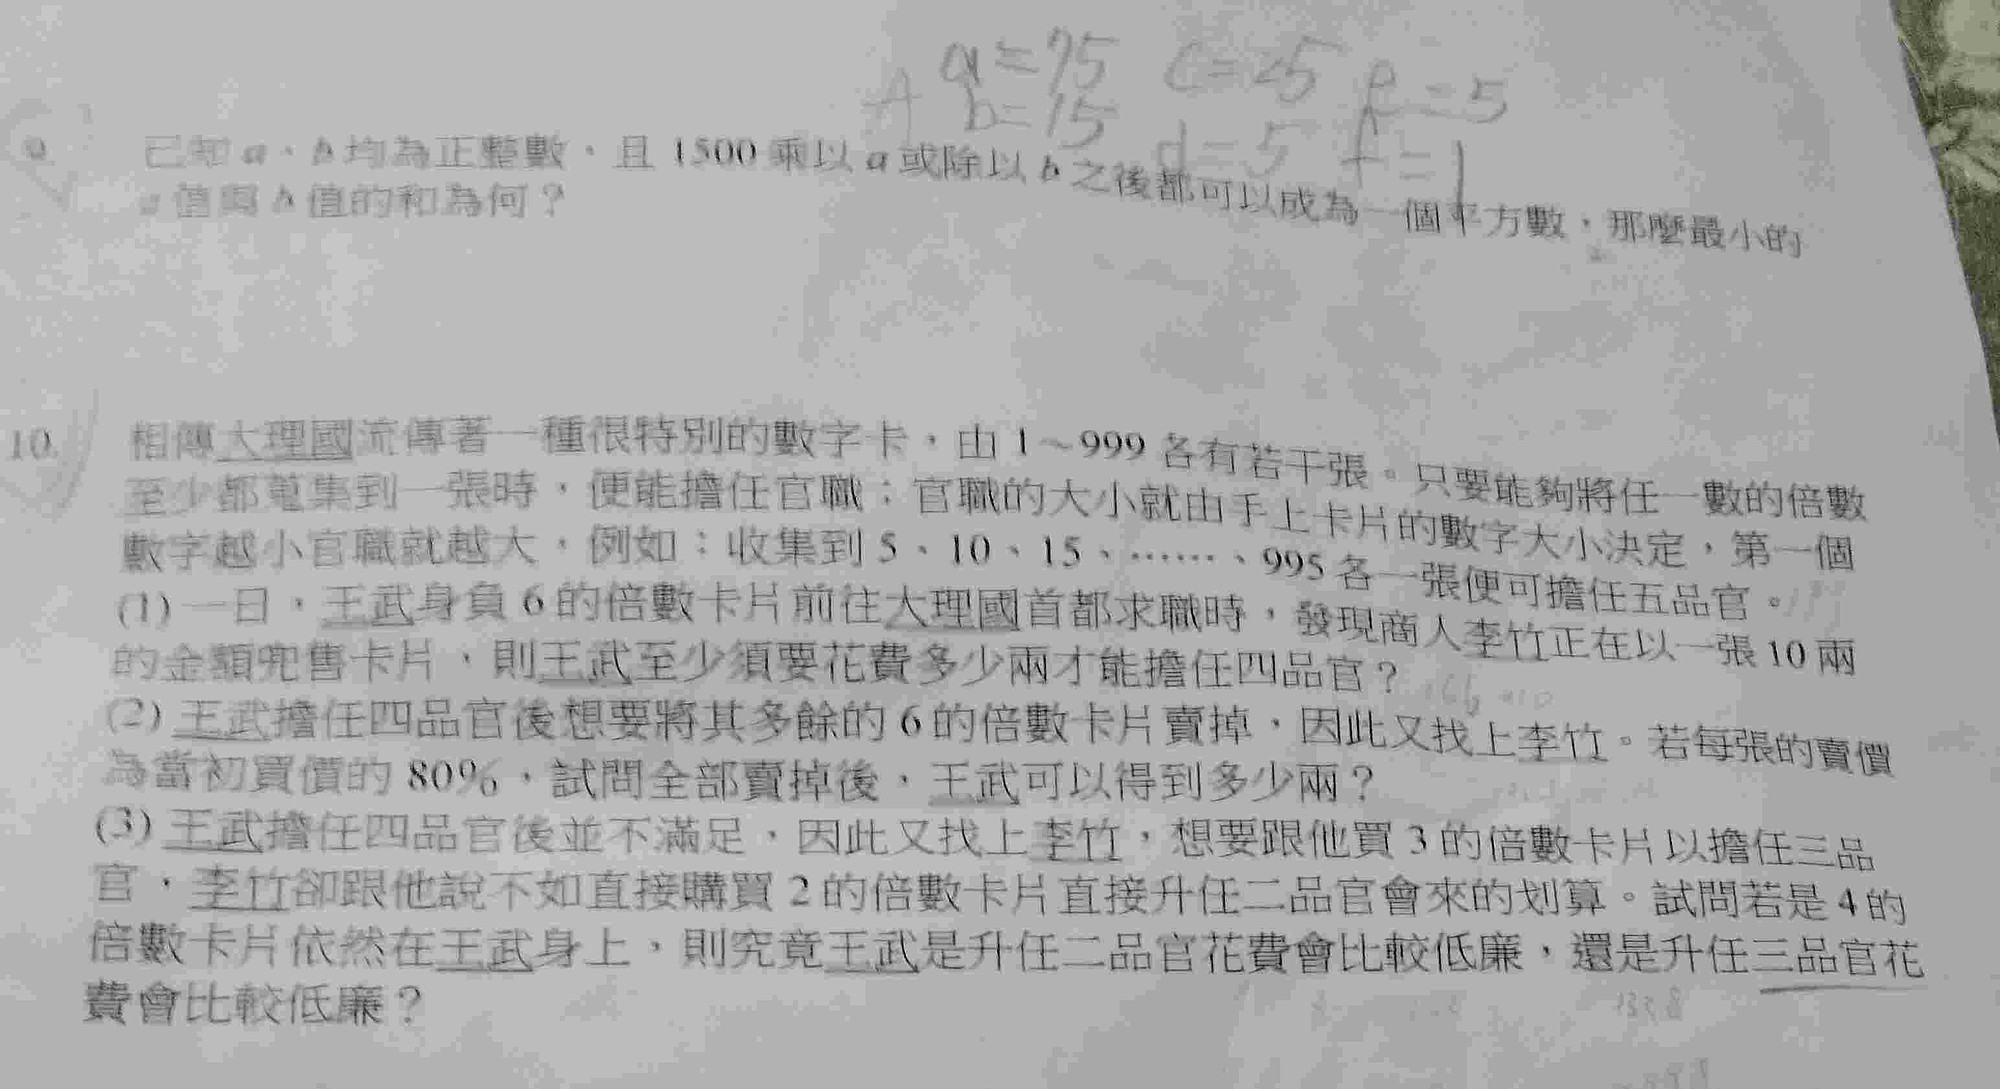 A a=75 c=25 e=5
b=15 d=5 f=1
9. 已知 a、b 均為正整數，且 1500 乘以 a 或除以 b 之後都可以成為一個平方數，那麼最小的
a 值與 b 值的和為何？
10. 相傳大理國流傳著一種很特別的數字卡，由 1～999 各有若干張。只要能夠將任一數的倍數
至少都蒐集到一張時，便能擔任官職；官職的大小就由手上卡片的數字大小決定，第一個
數字越小官職就越大，例如：收集到 5、10、15、……、995 各一張便可擔任五品官。
(1) 一日，王武身負 6 的倍數卡片前往大理國首都求職時，發現商人李竹正在以一張 10 兩
的金額兜售卡片，則王武至少須要花費多少兩才能擔任四品官？
(2) 王武擔任四品官後想要將其多餘的 6 的倍數卡片賣掉，因此又找上李竹。若每張的賣價
為當初買價的 80%，試問全部賣掉後，王武可以得到多少兩？
(3) 王武擔任四品官後並不滿足，因此又找上李竹，想要跟他買 3 的倍數卡片以擔任三品
官，李竹卻跟他說不如直接購買 2 的倍數卡片直接升任二品官會來的划算。試問若是 4 的
倍數卡片依然在王武身上，則究竟王武是升任二品官花費會比較低廉，還是升任三品官花
費會比較低廉？